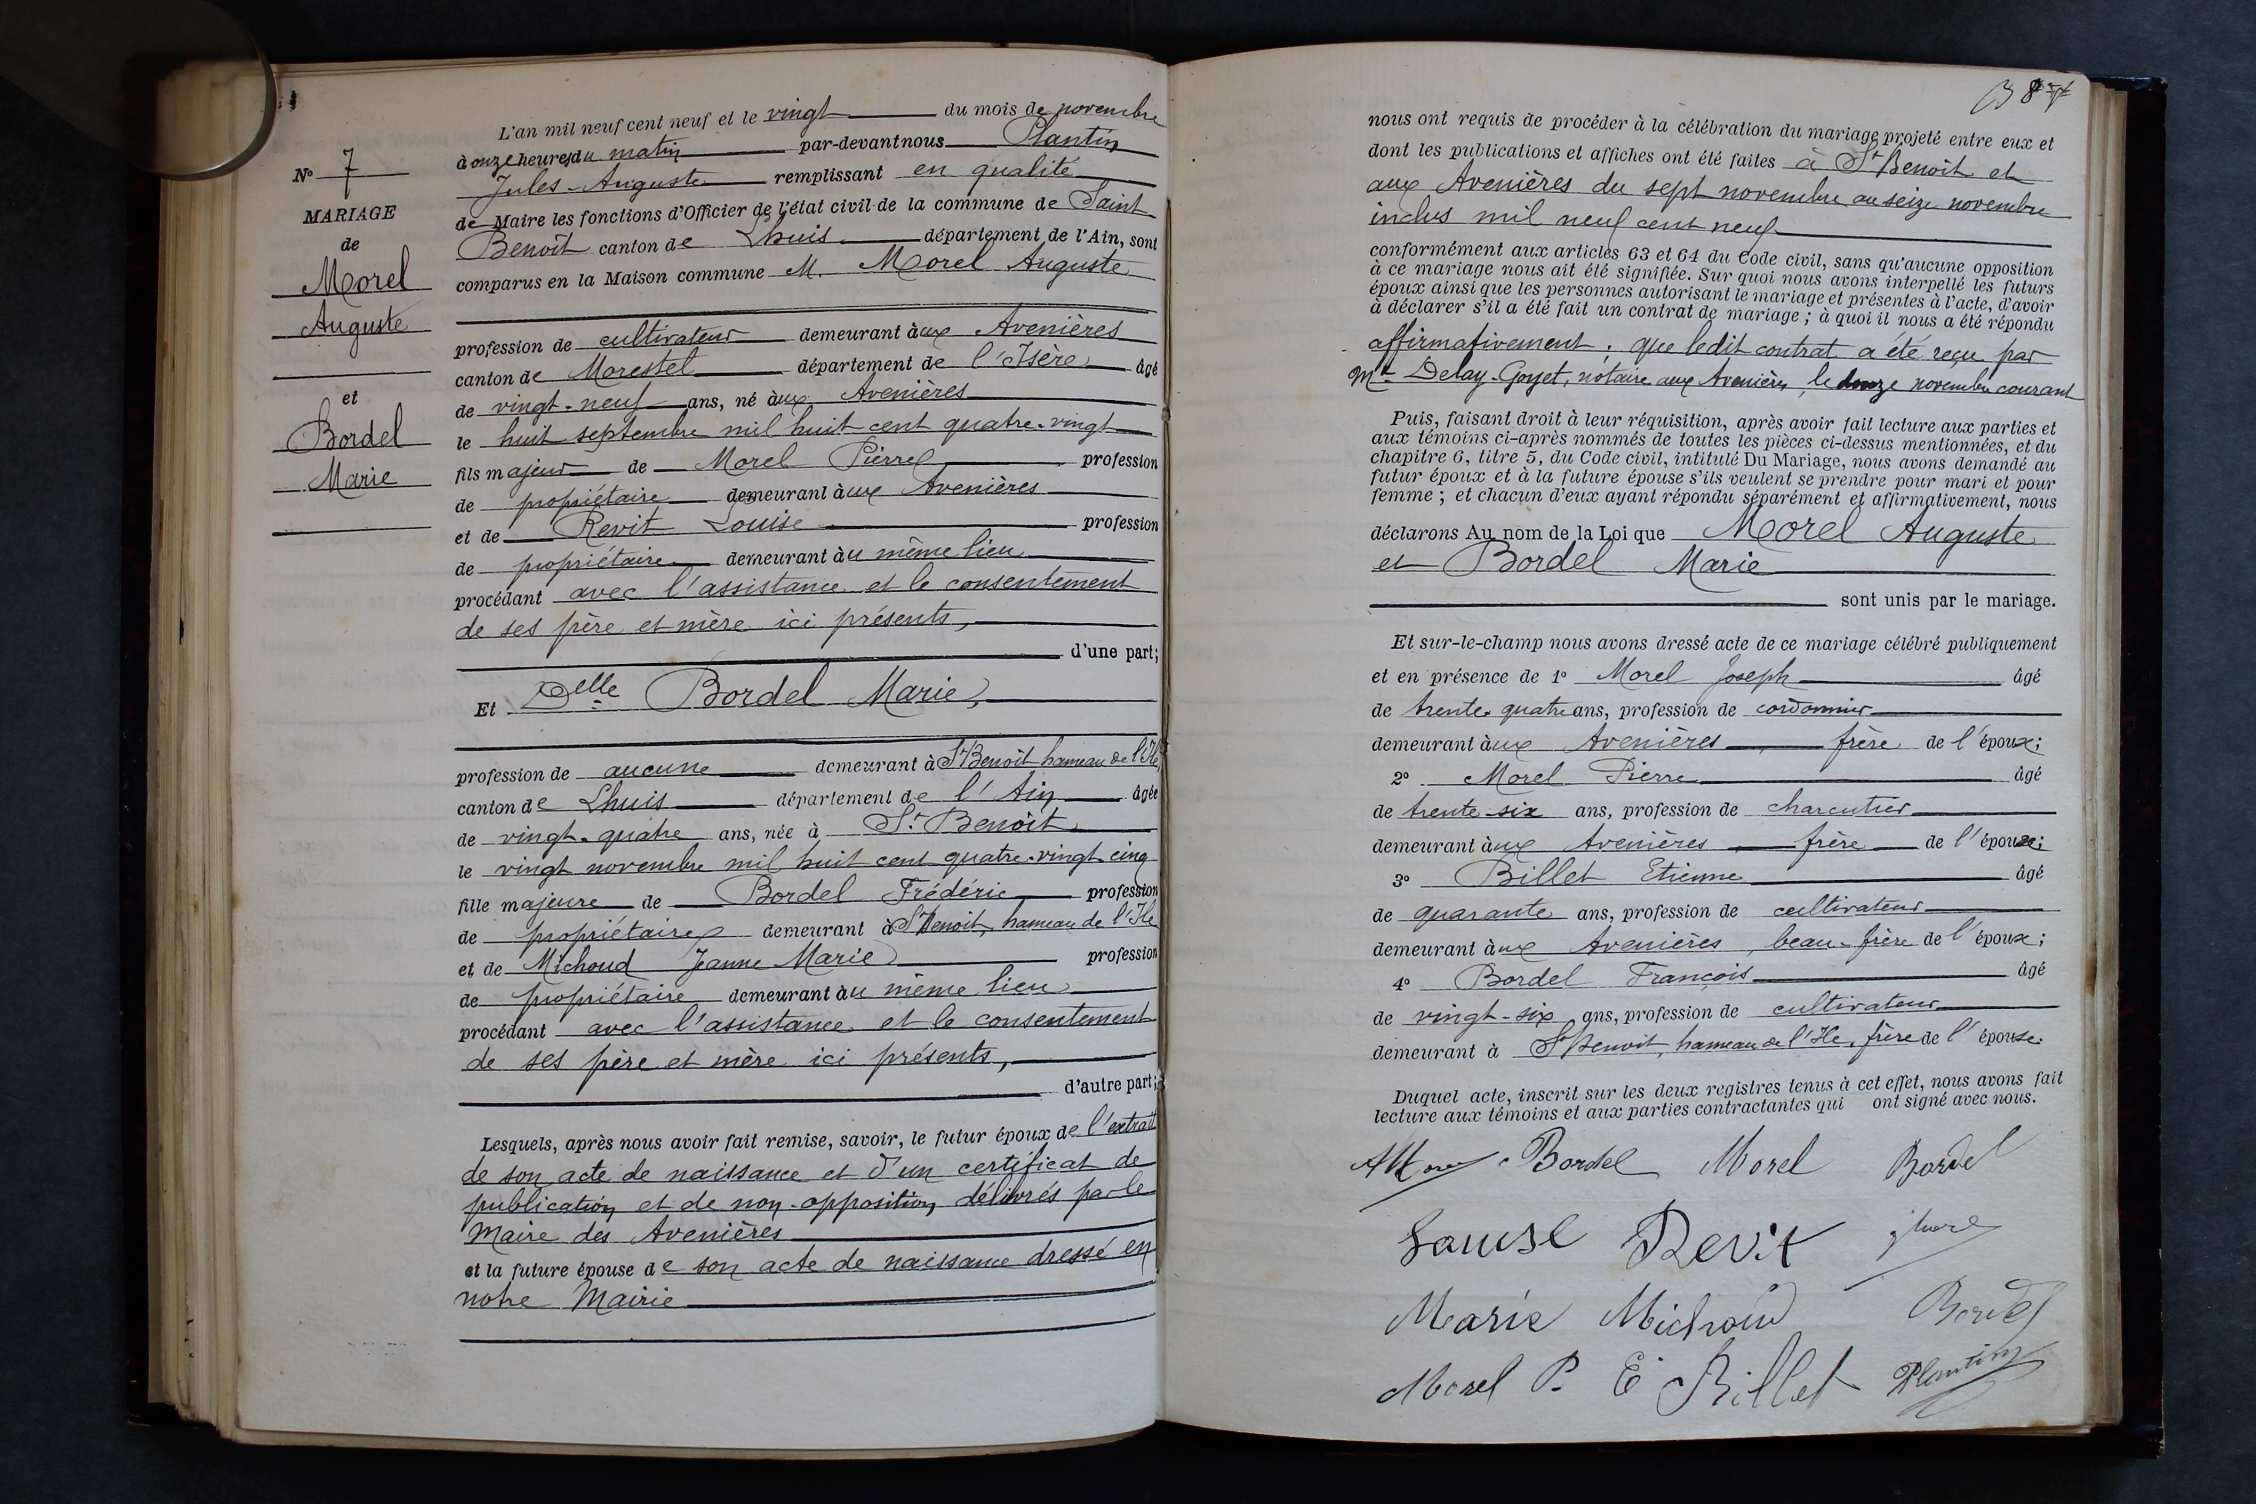 No 7
MARIAGE
de
Morel
Auguste
et
Bordel
Marie
L'an mil neuf cent neuf et le vingt du mois de novembre
à onze heures du matin par-devant nous Plantin
Jules-Auguste remplissant en qualité
de Maire les fonctions d'Officier de l'état civil de la commune de Saint
Benoît canton de Lhuis département de l'Ain, sont
comparus en la Maison commune M. Morel Auguste
profession de cultivateur demeurant àux Avenières
canton de Morestel département de l'Isère âgé
de vingt-neuf ans, né àux Avenières
le huit septembre mil huit cent quatre-vingt
fils majeur de Morel Pierre profession
de propriétaire demeurant àux Avenières
et de Revit Louise profession
de propriétaire demeurant àu même lieu
procédant avec l'assistance et le consentement
de ses père et mère ici présents,
d'une part;
Et Delle Bordel Marie,
profession de aucune demeurant à St Benoît hameau de l'Ile,
canton de Lhuis département de l'Ain âgée
de vingt-quatre ans, née à St Benoît
le vingt novembre mil huit cent quatre-vingt-cinq
fille majeure de Bordel Frédéric profession
de propriétaire demeurant à St Benoit, hameau de l'Ile
et de Michoud Jeanne Marie profession
de propriétaire demeurant àu même lieu
procédant avec l'assistance et le consentement
de ses père et mère ici présents,
d'autre part;
Lesquels, après nous avoir fait remise, savoir, le futur époux de l'extrait
de son acte de naissance et d'un certificat de
publication et de non-opposition délivrés par le
Maire des Avenières
et la future épouse de son acte de naissance dressé en
notre Mairie
nous ont requis de procéder à la célébration du mariage projeté entre eux et
dont les publications et affiches ont été faites à St Benoît et
aux Avenières du sept novembre au seize novembre
inclus mil neuf cent neuf
conformément aux articles 63 et 64 du Code civil, sans qu'aucune opposition
à ce mariage nous ait été signifiée. Sur quoi nous avons interpellé les futurs
époux ainsi que les personnes autorisant le mariage et présentes à l'acte, d'avoir
à déclarer s'il a été fait un contrat de mariage ; à quoi il nous a été répondu
affirmativement, que ledit contrat a été reçu par
Me Delay-Goyet, notaire aux Avenières, le douze novembre courant
Puis, faisant droit à leur réquisition, après avoir fait lecture aux parties et
aux témoins ci-après nommés de toutes les pièces ci-dessus mentionnées, et du
chapitre 6, titre 5, du Code civil, intitulé Du Mariage, nous avons demandé au
futur époux et à la future épouse s'ils veulent se prendre pour mari et pour
femme ; et chacun d'eux ayant répondu séparément et affirmativement, nous
déclarons Au nom de la Loi que Morel Auguste
et Bordel Marie
sont unis par le mariage.
Et sur-le-champ nous avons dressé acte de ce mariage célébré publiquement
et en présence de 1o Morel Joseph âgé
de trente-quatre ans, profession de cordonnier
demeurant àux Avenières, frère de l'époux;
2o Morel Pierre âgé
de trente-six ans, profession de charcutier
demeurant àux Avenières, frère de l'époux;
3o Billet Etienne âgé
de quarante ans, profession de cultivateur
demeurant àux Avenières, beau-frère de l'époux;
4o Bordel François âgé
de vingt-six ans, profession de cultivateur
demeurant à St Benoit, hameau de l'Ile, frère de l'épouse.
Duquel acte, inscrit sur les deux registres tenus à cet effet, nous avons fait
lecture aux témoins et aux parties contractantes qui ont signé avec nous.
A Morel Bordel Morel Bordel
Louise Revit
Marie Michoud Bordel
Morel P. E Billet Plantin